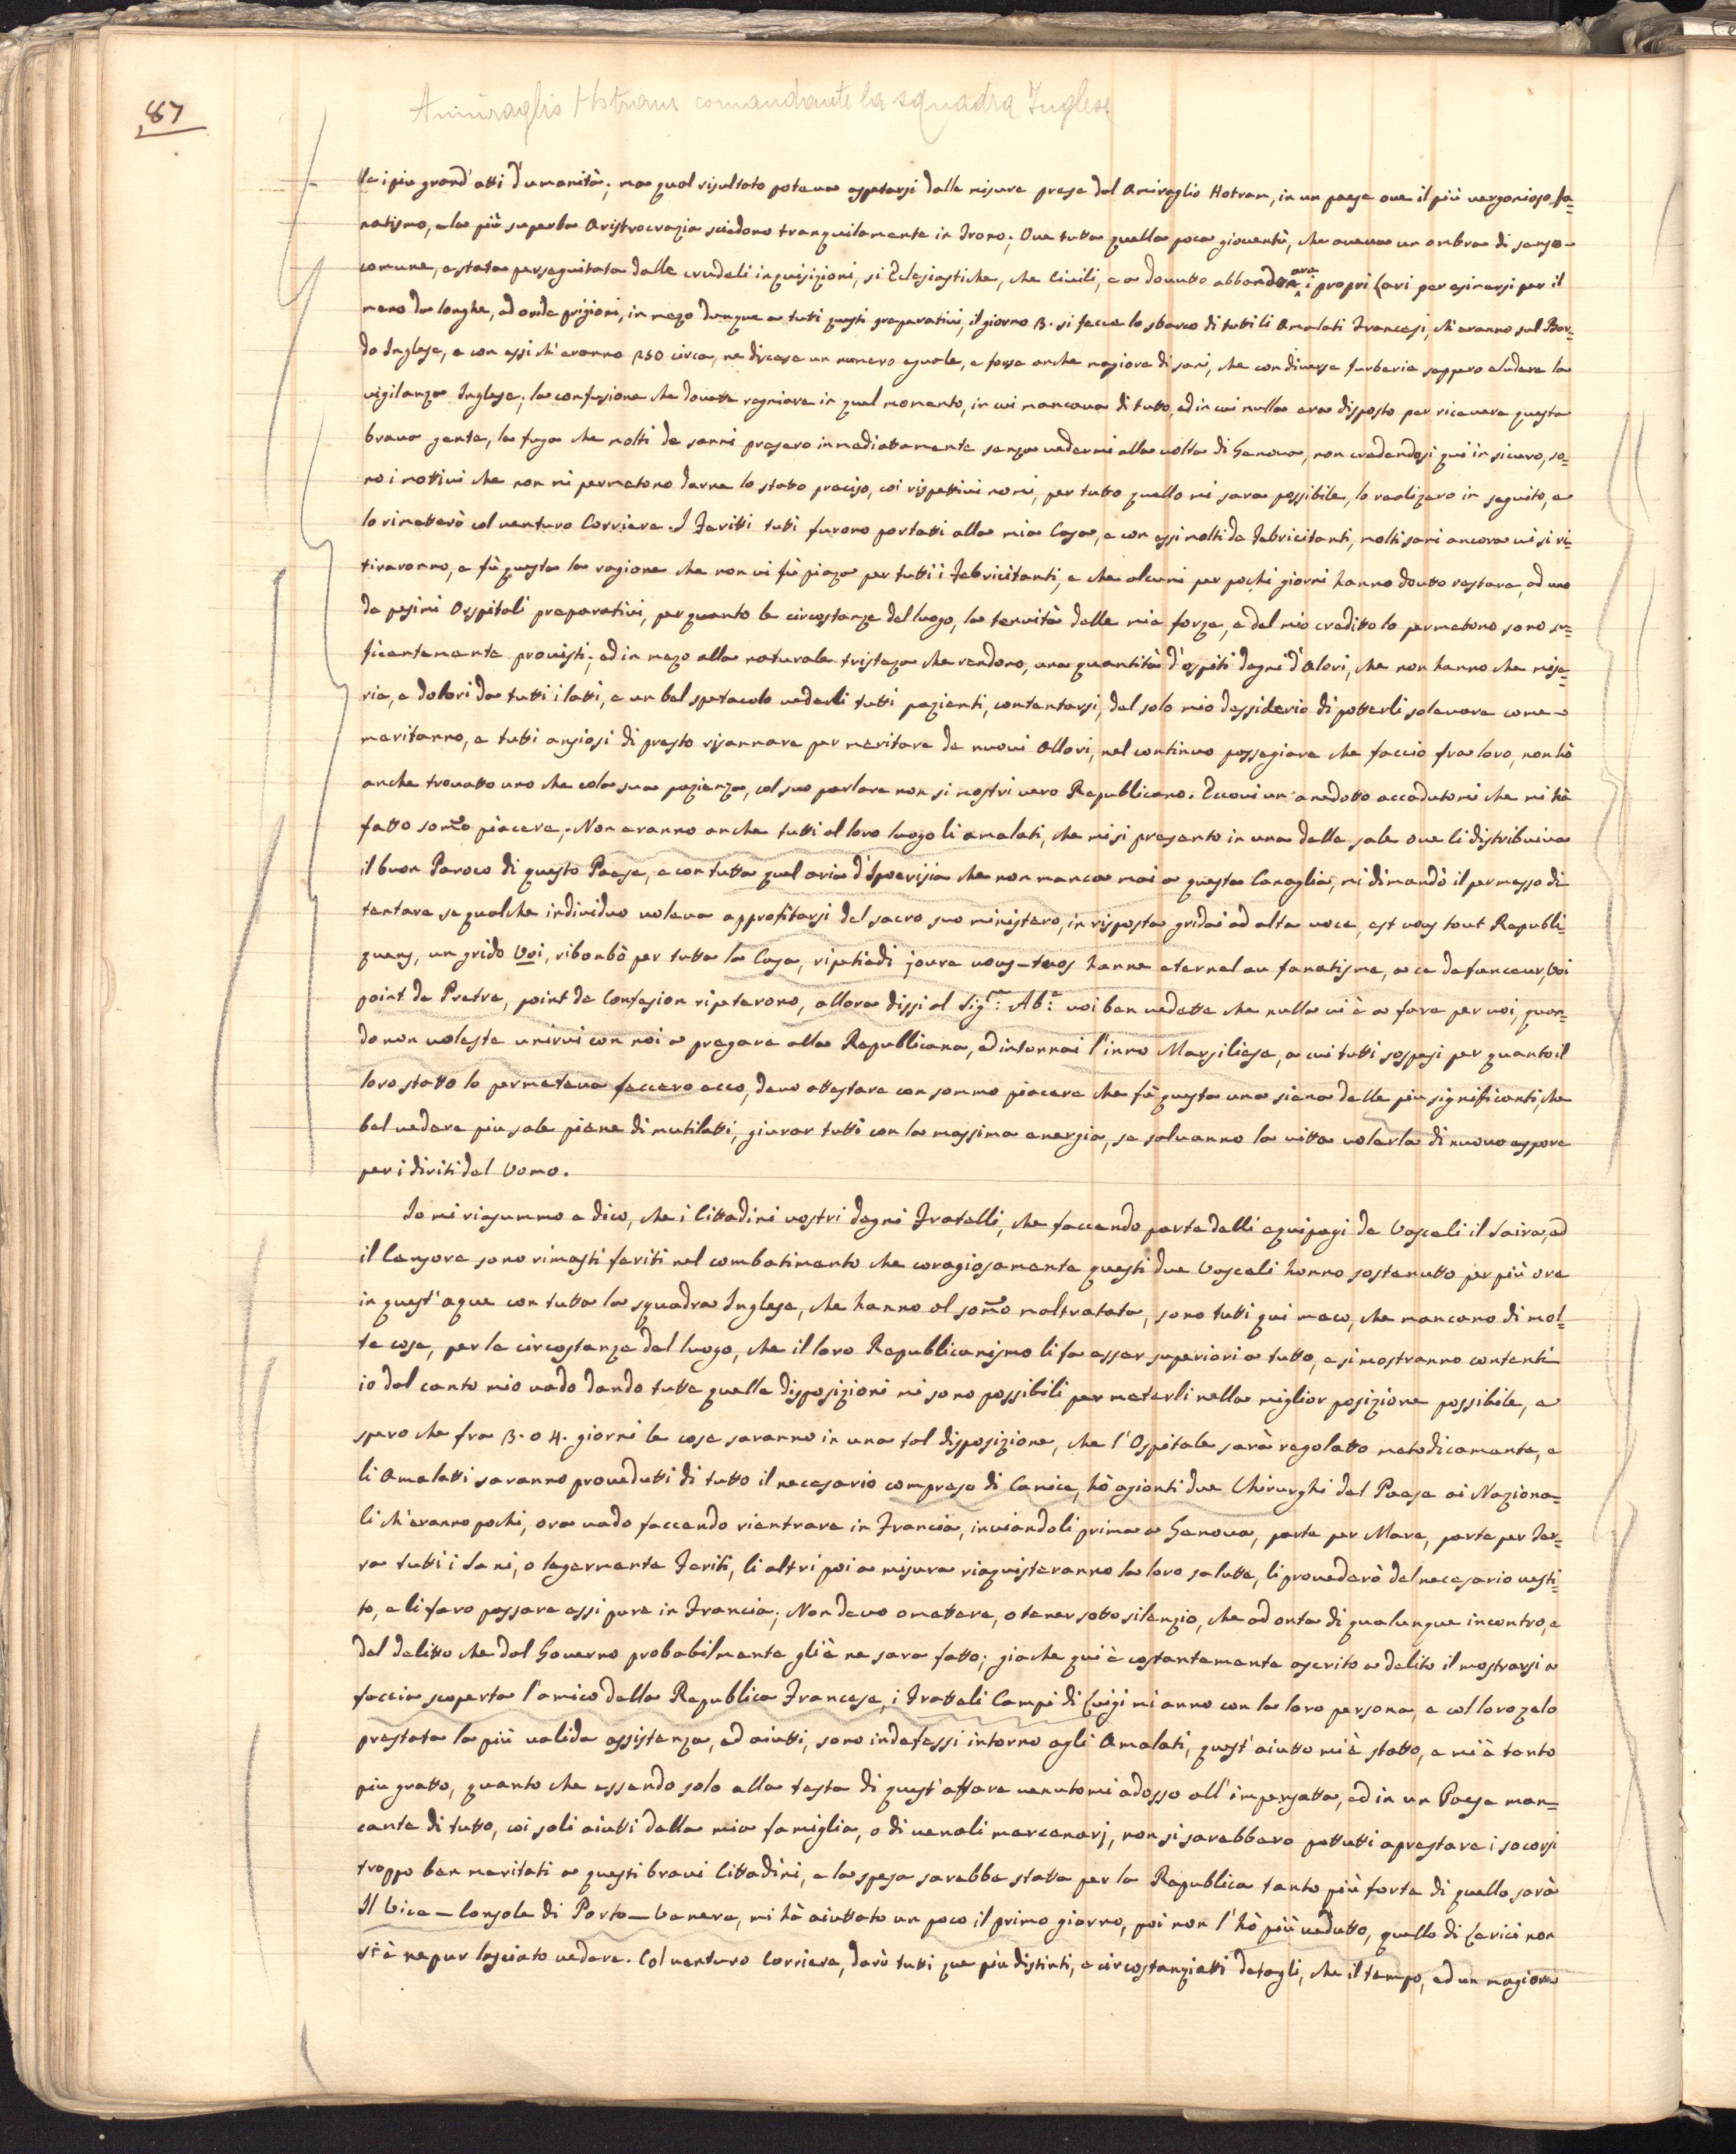 87
Amiraglio Hotram comandante la squadra Inglese
le i piu grand' atti d'umanità; ma qual risultato poteva aspetarsi dalle misure prese dal Amiraglio Hotram, in un paese ove il più vergonioso fa=
natismo, e la più superba Aristrocrazia sciedono tranquilamente in Trono; Ove tutta quella poca gioventù, che aveva un ombra di senso
comune, e stata perseguitata dalle crudeli inquisizioni, si Eclesiastiche, che Civili, e a dovutto abbandonare i propri Lari per esimersi per il
meno da longhe, ed oride prigioni, in mezo dunque a tutti questi preparativi, il giorno 3. si fecce lo sbarco di tutti li Amalati Francesi, ch'eranno sul Bor=
do Inglese, e con essi ch'eranno 250 circa, ne discese un numero eguale, e forse anche magiore di sani, che con diverse furberie seppero eludere la
vigilanza Inglese; la confusione che dovette regniare in quel momento, in cui mancava di tutto, ed in cui nulla era disposto per ricevere questa
brava gente, la fuga che molti de sanni presero immediattamente senza vedermi alla volta di Genova, non credendosi qui in sicuro, so=
no i mottivi che non mi permetono darne lo statto preciso, coi rispettivi nomi, per tutto quello mi sara possibile, lo realizero in seguito, e
lo rimetterò col venturo Corriere. I Feritti tutti furono portatti alla mia Casa, e con essi molti de Febricitanti, molti sani ancora vi si ri=
tiraronno, e fù questa la ragione che non vi fù piaza per tutti i Febricitanti, e che alcuni per pochi giorni hanno douto restare, ad uno
de pesimi Ospitali preparativi, per quanto le circostanze del luogo, la tenuità delle mie forze, e del mio creditto lo permetono sono su=
ficentemente provisti; ed in mezo alla naturale tristeza che rendono, una quantità d'ospiti degni d'Alori, che non hanno che mise=
rie, e dolori da tutti i latti, e un bel spetacolo vederli tutti pazienti, contentarsi, del solo mio dessiderio di potterli solevare come
meritanno, e tutti ansiosi di presto risannare per meritare de nuovi Allori, nel continuo passegiare che faccio fra loro, non hò
anche trovatto uno che cola sua pazienza, col suo parlare non si mostri vero Republicano. Eccovi un anedotto accadutomi che mi hà
fatto somo piacere. Non eranno anche tutti al loro luogo li amalati, che mi si presento in una delle sale ove li distribuiva
il buon Paroco di questo Paese, e con tutta quel aria d'Ipocrisia che non manca mai a questa Canaglia, mi dimandò il permesso di
tentare se qualche individuo voleva approfitarsi del sacro suo ministero, in risposta gridai ad alta voce, est vous tout Republi=
quens, un grido Voi, ribonbò per tutta la Casa, ripetiedi joure vous-tuos hanne eternel au fanatisme, a ce defenceur, Voi
point de Pretre, point de Confesion ripeterono, allora dissi al Sigr: Abe: voi ben vedette che nulla vi è a fare per voi, quan=
do non voleste unirvi con noi a pregare alla Republicana, ed intonnai l'inno Marsiliese, a cui tutti sospesi per quanto il
loro statto lo permeteva feccero ecco, devo attestare con sommo piacere che fù questa una siena delle piu significanti, che
bel vedere piu sale piene di mutilatti, giurar tutti con la massima energia, se salvanno la vitta volerla di nuovo espore
per i diriti del Uomo.
Io mi riasummo e dico, che i Cittadini vostri degni Fratelli, che faccendo parte delli equipagi de Vasceli il Saira, ed
il Censore sono rimasti feriti nel combatimento che coragiosamente questi due Vasceli hanno sostenutto per più ore
in quest' aque con tutta la squadra Inglese, che hanno al somo maltratata, sono tutti qui meco, che mancano di mol=
te cose, per le circostanze del luogo, che il loro Republicanismo li fa esser superiori a tutto, e si mostranno contenti
io dal canto mio vado dando tutte quelle disposizioni mi sono possibili per meterli nella miglior posizione possibile, e
spero che fra 3. o 4. giorni le cose saranno in una tal disposizione, che l'Ospitale sarà regolatto metodicamente, e
li Amalatti saranno provedutti di tutto il necesario compreso di Camice, hò agionti due Chirurghi del Paese ai Naziona=
li ch'eranno pochi, ora vado faccendo rientrare in Francia, inviandoli prima a Genova, parte per Mare, parte per Ter=
ra tutti i Sani, o legermente Feriti, li altri poi a misura riaquisteranno la loro salutte, li provederò del necesario vesti=
to, e li faro passare essi pure in Francia; Non devo omettere, o tener sotto silenzio, che ad onta di qualunque incontro, e
del delitto che dal Governo probabilmente gliè ne sara fatto; gia che qui è costantemente ascrito a delito il mostrarsi a
faccia scoperta l'amico della Republica Francese, i Frateli Campi di Luigi mi anno con la loro persona, e col loro zelo
prestata la più valida assistenza, ed aiutti, sono indefessi intorno agli Amalati, quest' aiutto mi è statto, e mi è tanto
piu gratto, quanto che essendo solo alla testa di quest' affare venutomi adosso all'impensatta, ed in un Paese man=
cante di tutto, coi soli aiutti della mia famiglia, o di venali mercenarj, non si sarebbero pottutti aprestare i socorsi
troppo ben meritati a questi bravi Cittadini, e la spesa sarebbe statta per la Republica tanto più forte di quello sarà
Il Vice-Console di Porto-Venere, mi hà aiuttato un poco il primo giorno, poi non l'hò più vedutto, quello di Lerici non
si è nepur lasciato vedere. Col venturo Corriere, darò tutti que più distinti, e circostanziatti detagli, che il tempo, ed un magiore